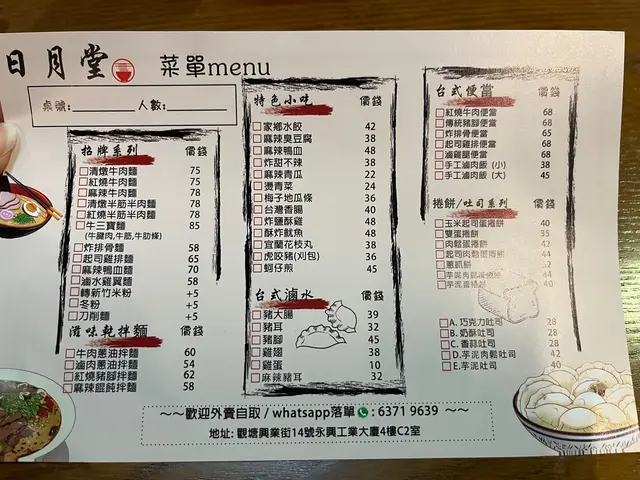 日月堂 菜單menu
桌號:________ 人數:________
招牌系列 價錢
清燉牛肉麵 75
紅燒牛肉麵 75
麻辣牛肉麵 78
清燉半筋半肉麵 78
紅燒半筋半肉麵 78
牛三寶麵 85
(牛腱肉,牛筋,牛肋條)
炸排骨麵 58
起司雞排麵 65
麻辣鴨血麵 70
滷水雞翼麵 58
轉新竹米粉 +5
冬粉 +5
刀削麵 +5
滋味乾拌麵 價錢
牛肉蔥油拌麵 60
滷肉蔥油拌麵 54
紅燒豬腳拌麵 62
麻辣餛飩拌麵 58
特色小吃 價錢
家鄉水餃 42
麻辣臭豆腐 38
麻辣鴨血 48
炸甜不辣 38
麻辣青瓜 22
燙青菜 24
梅子地瓜條 36
台灣香腸 40
炸鹽酥雞 48
酥炸魷魚 48
宜蘭花枝丸 38
虎咬豬(刈包) 36
蚵仔煎 45
台式滷水 價錢
豬大腸 39
豬耳 32
豬腳 45
雞翅 38
雞蛋 10
麻辣豬耳 32
台式便當 價錢
紅燒牛肉便當 68
傳統豬腳便當 68
炸排骨便當 65
起司雞排便當 68
滷雞腿便當 68
手工滷肉飯 (小) 38
手工滷肉飯 (大) 45
捲餅/吐司系列 價錢
玉米起司蛋捲餅 40
雙蛋捲餅 35
肉鬆蛋捲餅 42
起司肉鬆蛋捲餅 44
蔥抓餅
A. 巧克力吐司 28
B. 奶酥吐司 28
C. 香蒜吐司 28
D.芋泥肉鬆吐司 42
E.芋泥吐司 40
~~歡迎外賣自取 / whatsapp落單 : 6371 9639 ~~
地址: 觀塘興業街14號永興工業大廈4樓C2室